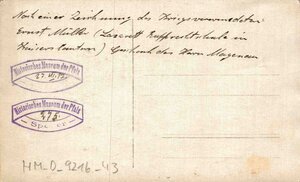 Nach einer Zeichnung des Kriegsverwundeten
Ernst Müller (Lazarett Rupprechtschule in
Kaiserslautern) Geschenk des Herrn
Historisches Museum der Pfalz
Historisches Museum der Pfalz
373
Speyer
HM_0_9216_43